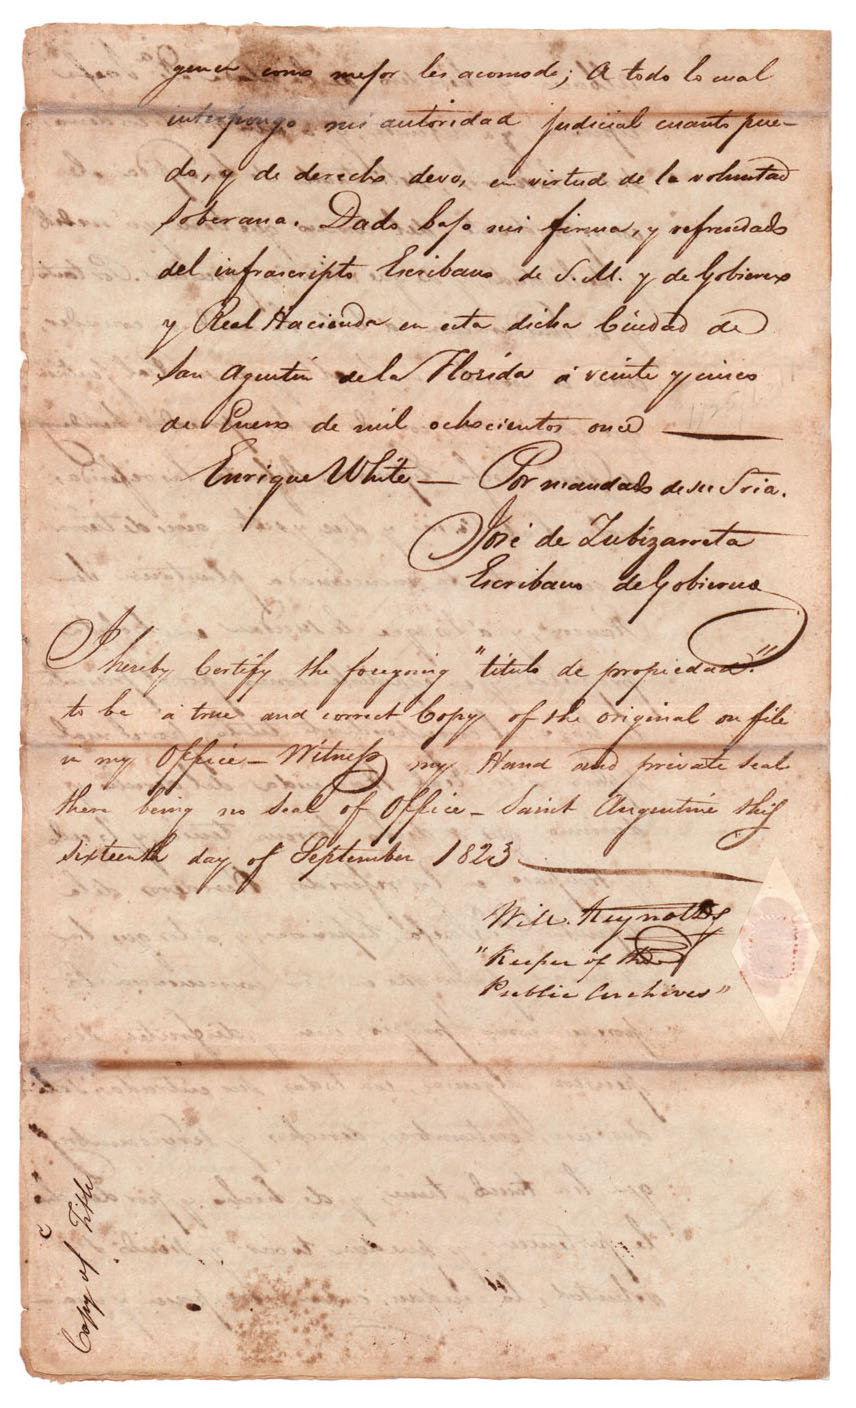 genen como mejor les acomode; A todo lo cual
interpongo mi autoridad judicial cuanto pue-
do, y de derecho devo, en virtud de la voluntad
Soberana. Dado bajo mi firma, y refrendado
del infrascripto Escribano de S. M. y de Gobierno
y Real Hacienda en esta dicha Ciudad de
San Agustin de la Florida á veinte y cinco
de Enero de mil ochocientos once
Enrique White — Por mandado de su Sria.
José de Zubizarreta
Escribano de Gobierno
I hereby Certify the foregoing "titulo de propiedad"
to be a true and correct Copy of the original on file
in my Office — Witness my Hand and private seal
there being no Seal of Office — Saint Augustine this
sixteenth day of September 1823
Will. Reynolds
"Keeper of the
Public Archives"
Copy of Title